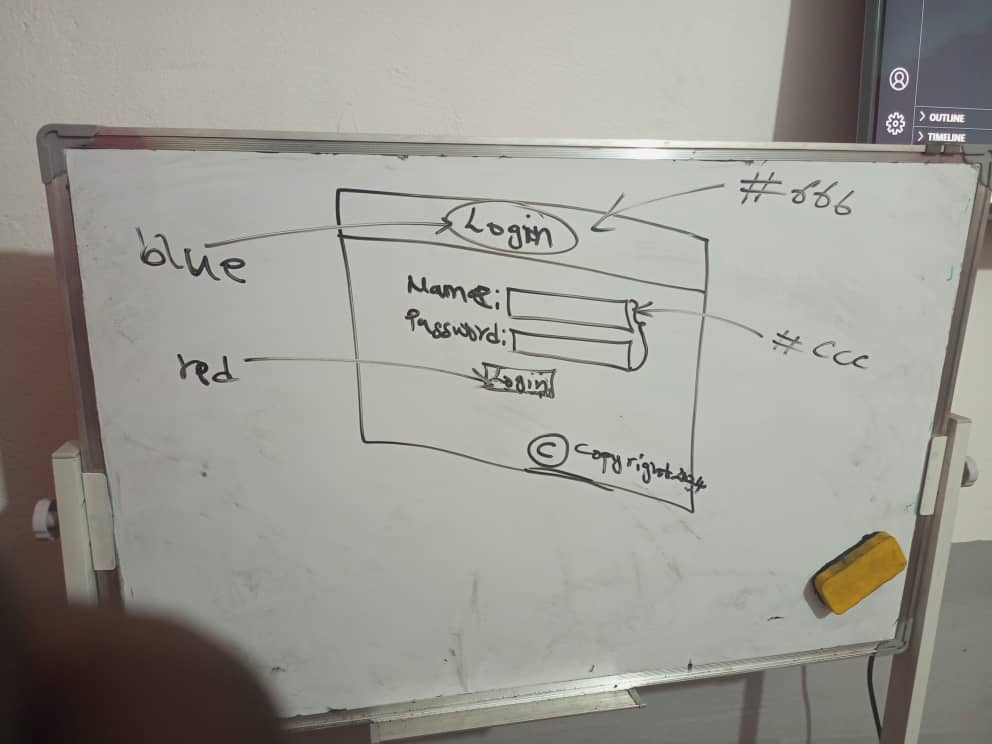 OUTLINE
TIMELINE
#666
Login
blue
Name:
Password:
#ccc
red
Login
© Copyright